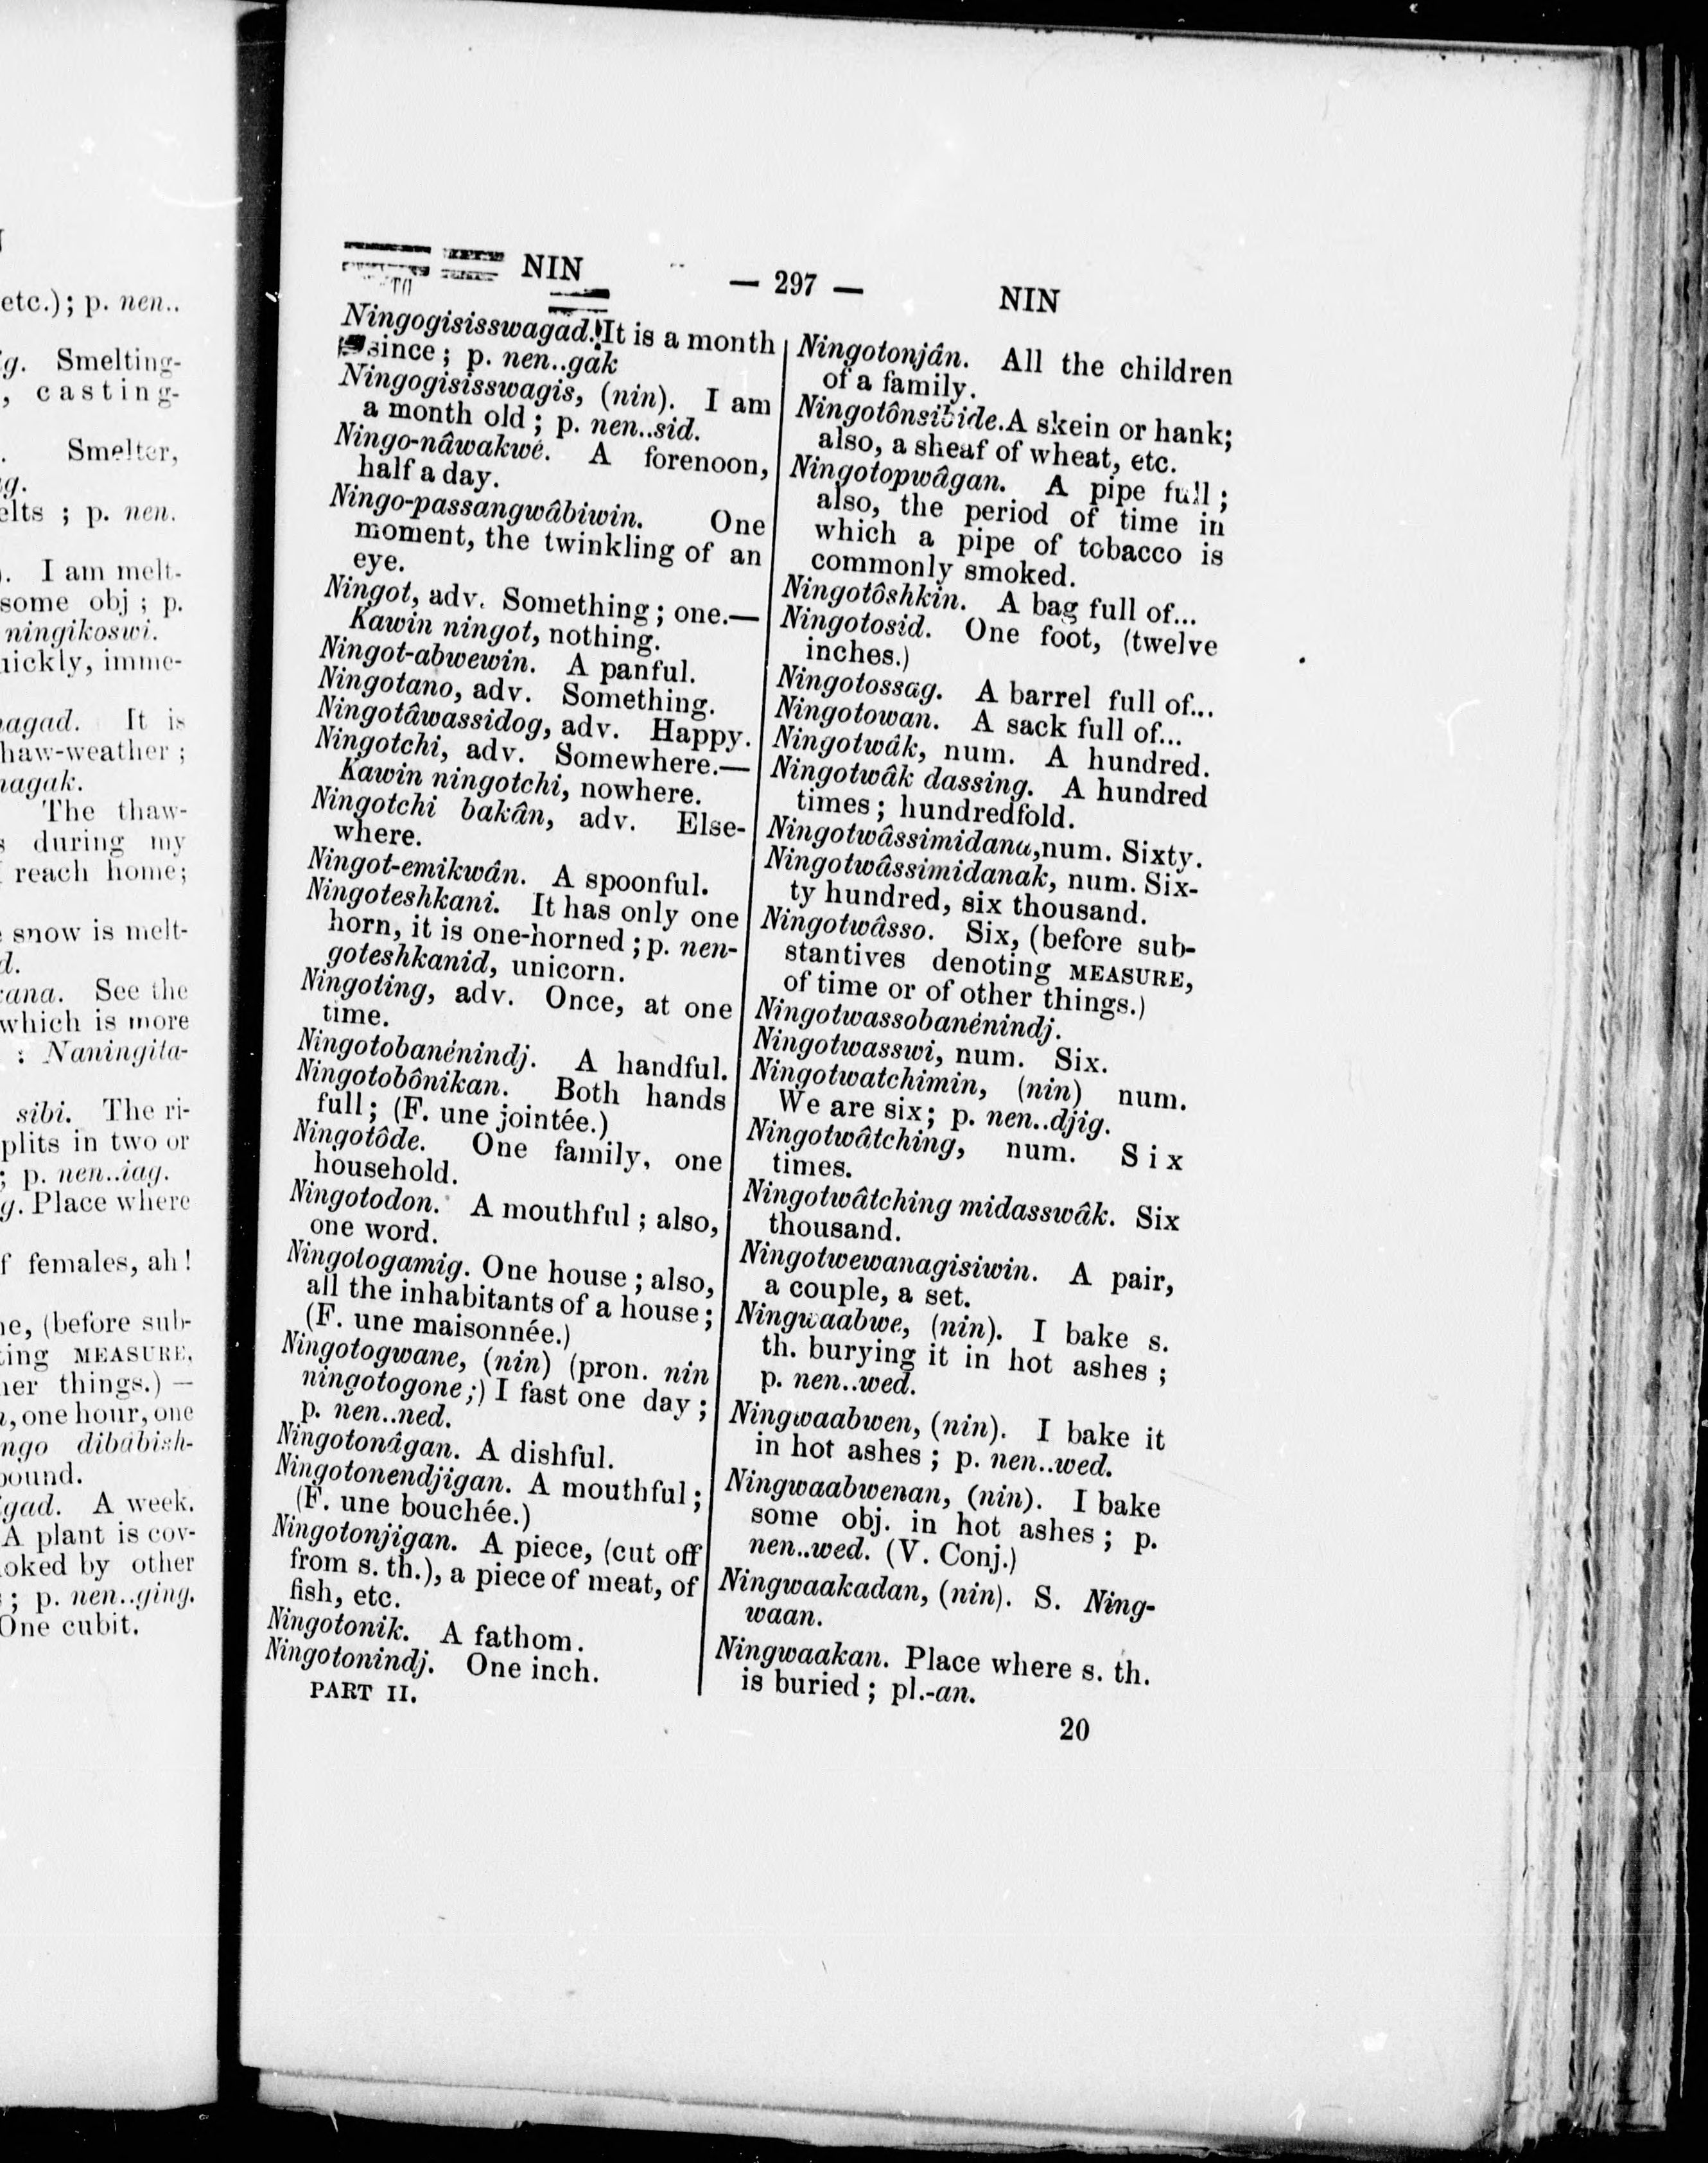 etc.); p. nen..
g. Smelting-
, casting-
. Smelter,
elts ; p. nen.
). I am melt-
some obj ; p.
ningikoswi.
uickly, imme-
agad. It is
haw-weather ;
nagak.
The thaw-
s during my
I reach home;
snow is melt-
d.
See the
which is more
: Naningita-
sibi. The ri-
plits in two or
; p. nen..iag.
g. Place where
f females, ah!
ne, (before sub-
ting MEASURE,
her things.) —
, one hour, one
ngo dibâbish-
pound.
gad. A week.
A plant is cov-
oked by other
; p. nen..ging.
One cubit.
NIN — 297 — NIN
Ningogisisswagad. It is a month
since ; p. nen..gak
Ningogisisswagis, (nin). I am
a month old ; p. nen..sid.
Ningo-nâwakwe. A forenoon,
half a day.
Ningo-passangwâbiwin. One
moment, the twinkling of an
eye.
Ningot, adv. Something ; one.—
Kawin ningot, nothing.
Ningot-abwewin. A panful.
Ningotano, adv. Something.
Ningotâwassidog, adv. Happy.
Ningotchi, adv. Somewhere.—
Kawin ningotchi, nowhere.
Ningotchi bakân, adv. Else-
where.
Ningot-emikwân. A spoonful.
Ningoteshkani. It has only one
horn, it is one-horned ; p. nen-
goteshkanid, unicorn.
Ningoting, adv. Once, at one
time.
Ningotobanénindj. A handful.
Ningotobônikan. Both hands
full ; (F. une jointée.)
Ningotôde. One family, one
household.
Ningotodon. A mouthful ; also,
one word.
Ningotogamig. One house ; also,
all the inhabitants of a house ;
(F. une maisonnée.)
Ningotogwane, (nin) (pron. nin
ningotogone ;) I fast one day ;
p. nen..ned.
Ningotonâgan. A dishful.
Ningotonendjigan. A mouthful ;
(F. une bouchée.)
Ningotonjigan. A piece, (cut off
from s. th.), a piece of meat, of
fish, etc.
Ningotonik. A fathom.
Ningotonindj. One inch.
PART II.
Ningotonjân. All the children
of a family.
Ningotônsibide. A skein or hank;
also, a sheaf of wheat, etc.
Ningotopwâgan. A pipe full ;
also, the period of time in
which a pipe of tobacco is
commonly smoked.
Ningotôshkin. A bag full of...
Ningotosid. One foot, (twelve
inches.)
Ningotossag. A barrel full of...
Ningotowan. A sack full of...
Ningotwâk, num. A hundred.
Ningotwâk dassing. A hundred
times ; hundredfold.
Ningotwâssimidana,num. Sixty.
Ningotwâssimidanak, num. Six-
ty hundred, six thousand.
Ningotwâsso. Six, (before sub-
stantives denoting MEASURE,
of time or of other things.)
Ningotwassobanénindj.
Ningotwasswi, num. Six.
Ningotwatchimin, (nin) num.
We are six ; p. nen..djig.
Ningotwâtching, num. Six
times.
Ningotwâtching midasswâk. Six
thousand.
Ningotwewanagisiwin. A pair,
a couple, a set.
Ningwaabwe, (nin). I bake s.
th. burying it in hot ashes ;
p. nen..wed.
Ningwaabwen, (nin). I bake it
in hot ashes ; p. nen..wed.
Ningwaabwenan, (nin). I bake
some obj. in hot ashes ; p.
nen..wed. (V. Conj.)
Ningwaakadan, (nin). S. Ning-
waan.
Ningwaakan. Place where s. th.
is buried ; pl.-an.
20